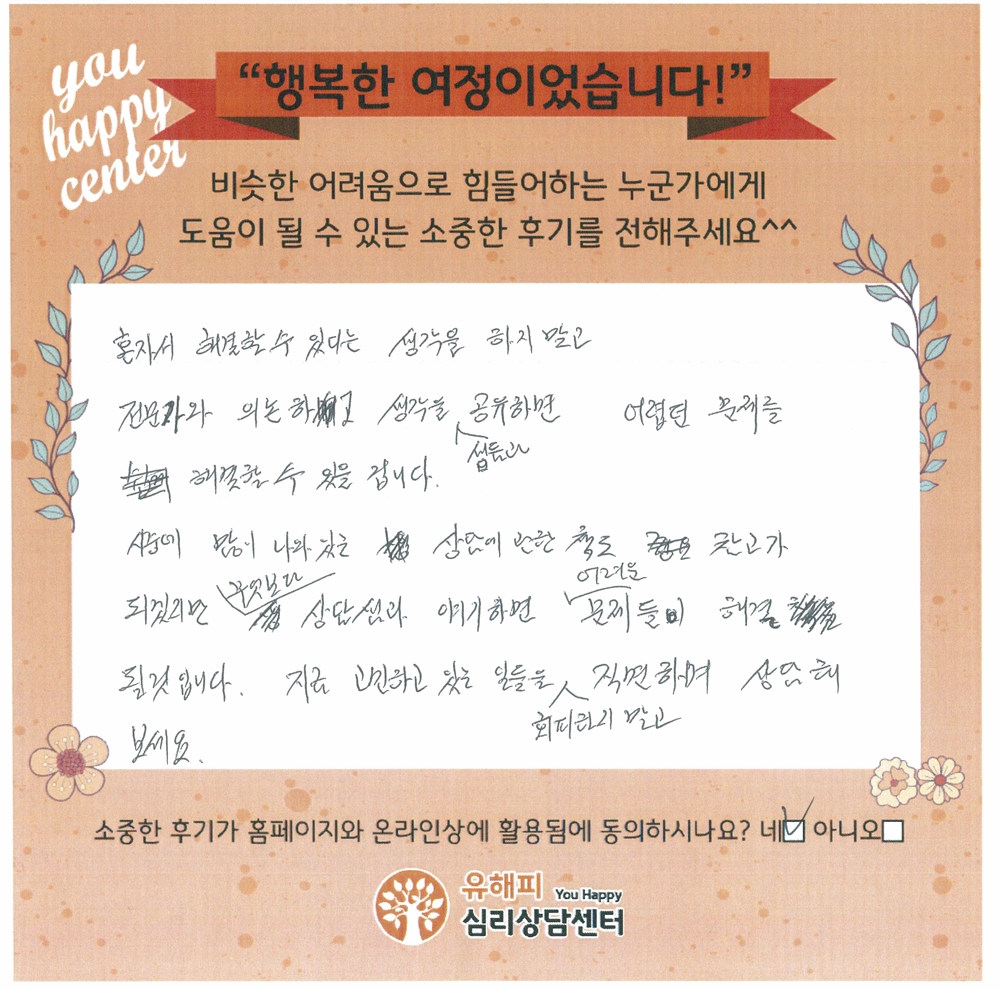 you
happy
center
“행복한 여정이었습니다!”
비슷한 어려움으로 힘들어하는 누군가에게
도움이 될 수 있는 소중한 후기를 전해주세요^^
혼자서 해결할 수 있다는 생각을 하지 말고
전문가와 의논하고 생각을 공유하면 어렵던 문제를
쌤들과
해결할 수 있을 겁니다.
시중에 많이 나와 있는 상담에 관한 책도 참고가
무엇보다 어려운
되겠지만 상담쌤과 얘기하면 문제들이 해결
될 것입니다. 지금 고민하고 있는 일들을 직면하며 상담해
회피하지 말고
보세요.
소중한 후기가 홈페이지와 온라인상에 활용됨에 동의하시나요? 네 아니오
유해피 You Happy
심리상담센터